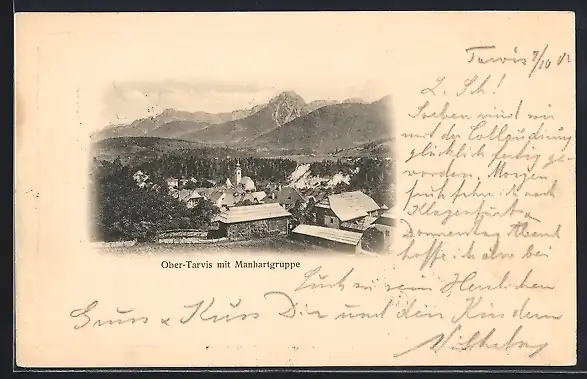 Tarvis 7/10 02
L. Sch!
Soeben sind wir
mit der Collaudirung
glücklich fertig ge
worden. Morgen
früh fahre ich nach
Klagenfurt u.
Donnerstag Abend
hoffe ich schon bei
Euch zu sein Herzlichen
Gruss & Kuss Dir und den Kindern
Wilhelm
Ober-Tarvis mit Manhartgruppe